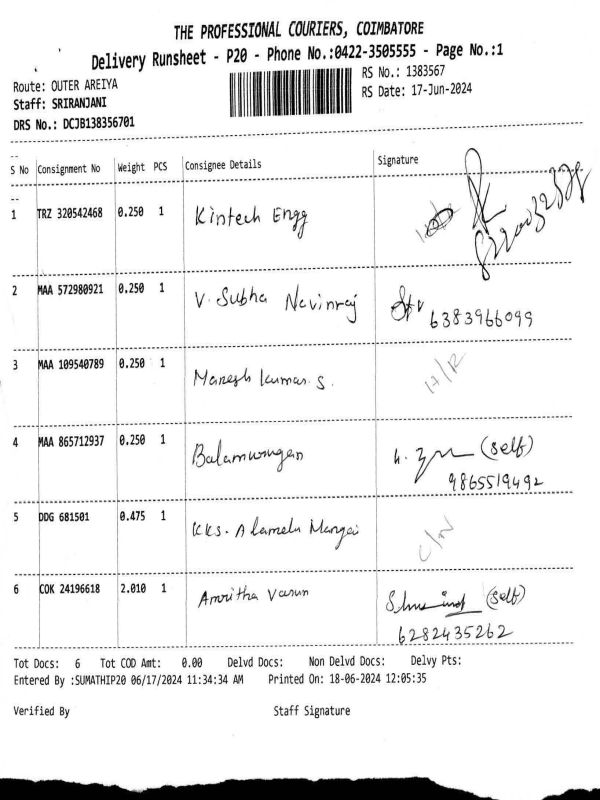 THE PROFESSIONAL COURIERS, COIMBATORE
Delivery Runsheet - P20 - Phone No.:0422-3505555 - Page No.:1
Route: OUTER AREIYA
RS No.: 1383567
Staff: SRIRANJANI
RS Date: 17-Jun-2024
DRS No.: DCJB138356701
S No Consignment No Weight PCS Consignee Details Signature
1 TRZ 320542468 0.250 1 Kintech Engg
2 MAA 572980921 0.250 1 V. Subha Navinraj
6383966099
3 MAA 109540789 0.250 1 Maresh kumar. S. H/R
4 MAA 865712937 0.250 1 Balamurugan (self)
9865519492
5 DDG 681501 0.475 1 KKS. Alamelu Mangai
6 COK 24196618 2.010 1 Amritha Varun (self)
6282435262
Tot Docs: 6 Tot COD Amt: 0.00 Delvd Docs: Non Delvd Docs: Delvy Pts:
Entered By :SUMATHIP20 06/17/2024 11:34:34 AM Printed On: 18-06-2024 12:05:35
Verified By Staff Signature